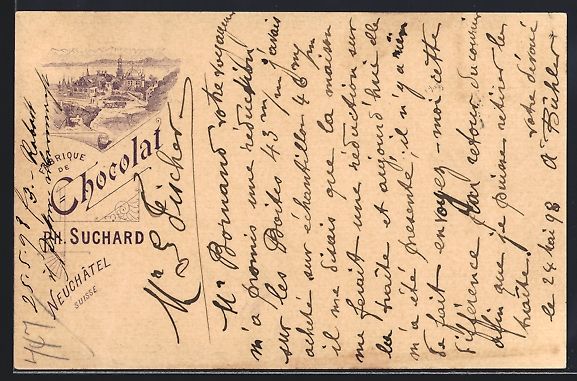 FABRIQUE
DE
Chocolat
PH. SUCHARD
NEUCHÂTEL
SUISSE
25.5.98
Mr Fischer
Mr Bornand votre voyageur
m'a promis une réduction
sur les Boîtes 43 m/m j'avais
acheté sur échantillon 46
il me disais que la maison
me ferait une réduction sur
la traite et aujourd'hui elle
m'a été présenté, il n'y a rien
de fait envoyez-moi cette
différence par retour du courrier
afin que je puisse retirer la
traite.
votre dévoué
le 24 Mai 98 A Bühler